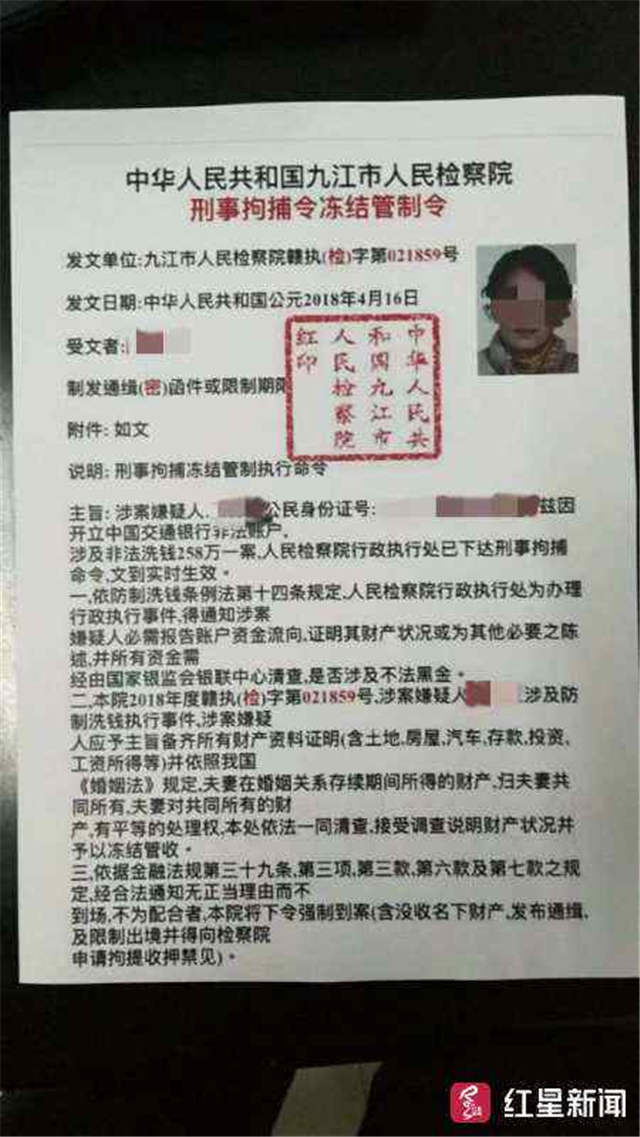 中华人民共和国九江市人民检察院
刑事拘捕令冻结管制令
发文单位:九江市人民检察院赣执(检)字第021859号
发文日期:中华人民共和国公元2018年4月16日
受文者:
制发通缉(密)函件或限制期限
附件: 如文
说明: 刑事拘捕冻结管制执行命令
中华人民共
和国九江市
人民检察院
红印
主旨: 涉案嫌疑人 公民身份证号: 兹因
开立中国交通银行非法账户,
涉及非法洗钱258万一案,人民检察院行政执行处已下达刑事拘捕
命令,文到实时生效。
一,依防制洗钱条例法第十四条规定,人民检察院行政执行处为办理
行政执行事件,得通知涉案
嫌疑人必需报告账户资金流向,证明其财产状况或为其他必要之陈
述,并所有资金需
经由国家银监会银联中心清查,是否涉及不法黑金。
二,本院2018年度赣执(检)字第021859号,涉案嫌疑人 涉及防
制洗钱执行事件,涉案嫌疑
人应予主旨备齐所有财产资料证明(含土地,房屋,汽车,存款,投资,
工资所得等)并依照我国
《婚姻法》规定,夫妻在婚姻关系存续期间所得的财产,归夫妻共
同所有,夫妻对共同所有的财
产,有平等的处理权,本处依法一同清查,接受调查说明财产状况并
予以冻结管收。
三,依据金融法规第三十九条,第三项,第三款,第六款及第七款之规
定,经合法通知无正当理由而不
到场,不为配合者,本院将下令强制到案(含没收名下财产,发布通缉,
及限制出境并得向检察院
申请拘提收押禁见)。
红星新闻